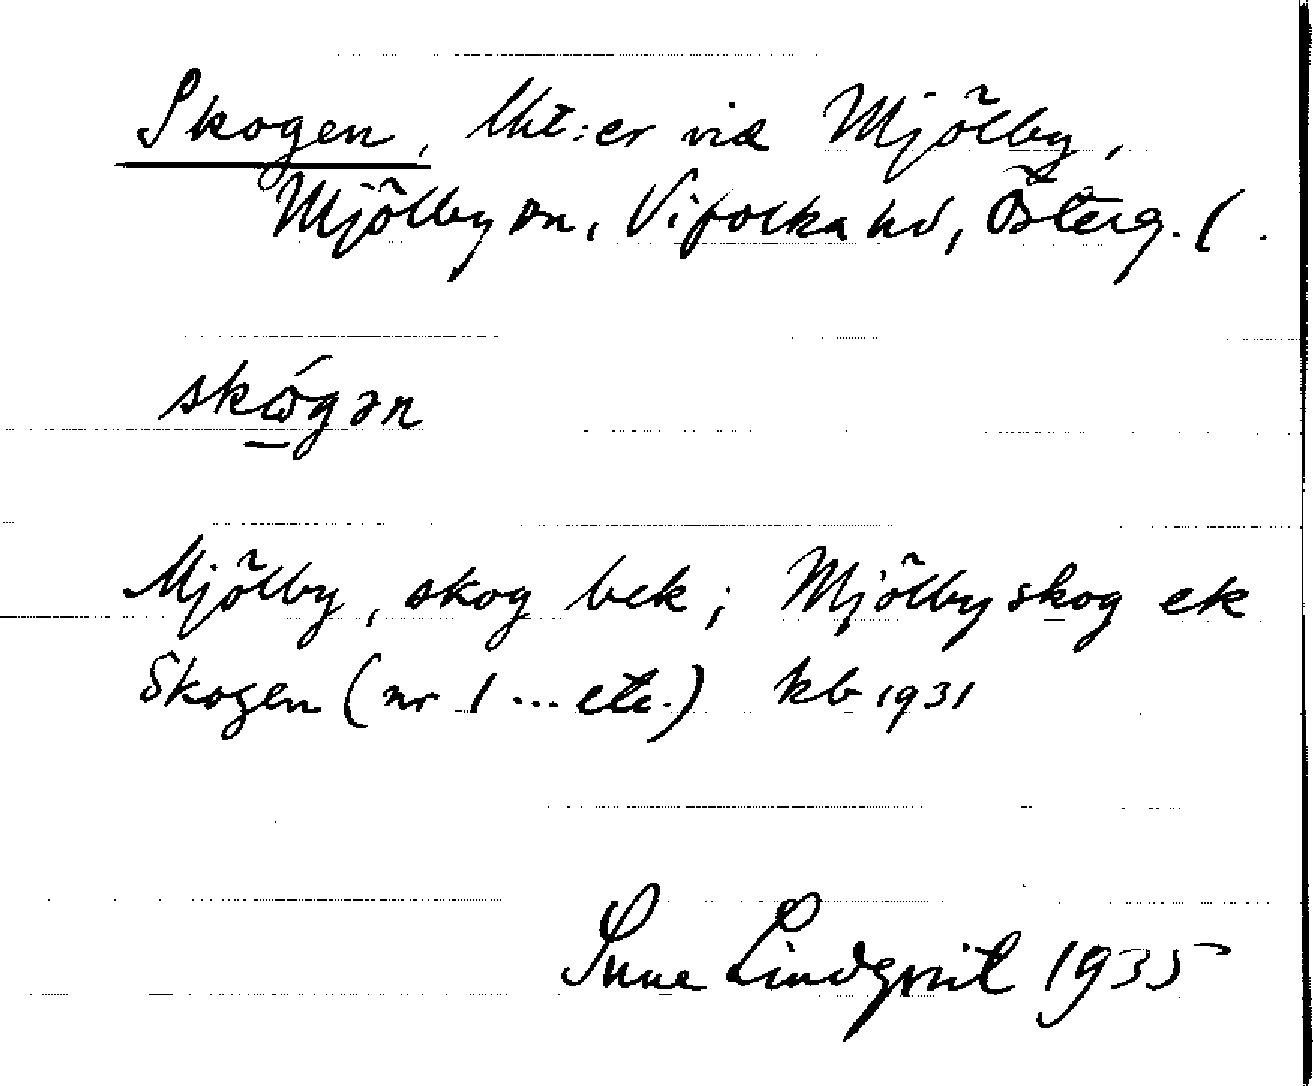 Skogen, lht:er vid Mjölby,
Mjölby sn, Vifolka hd, Österg. l.
skώ̲gən
Mjölby, skog bek; Mjölby skog ek
Skogen (nr 1 ... etc.) kb 1931
Sune Lindqvist 1935